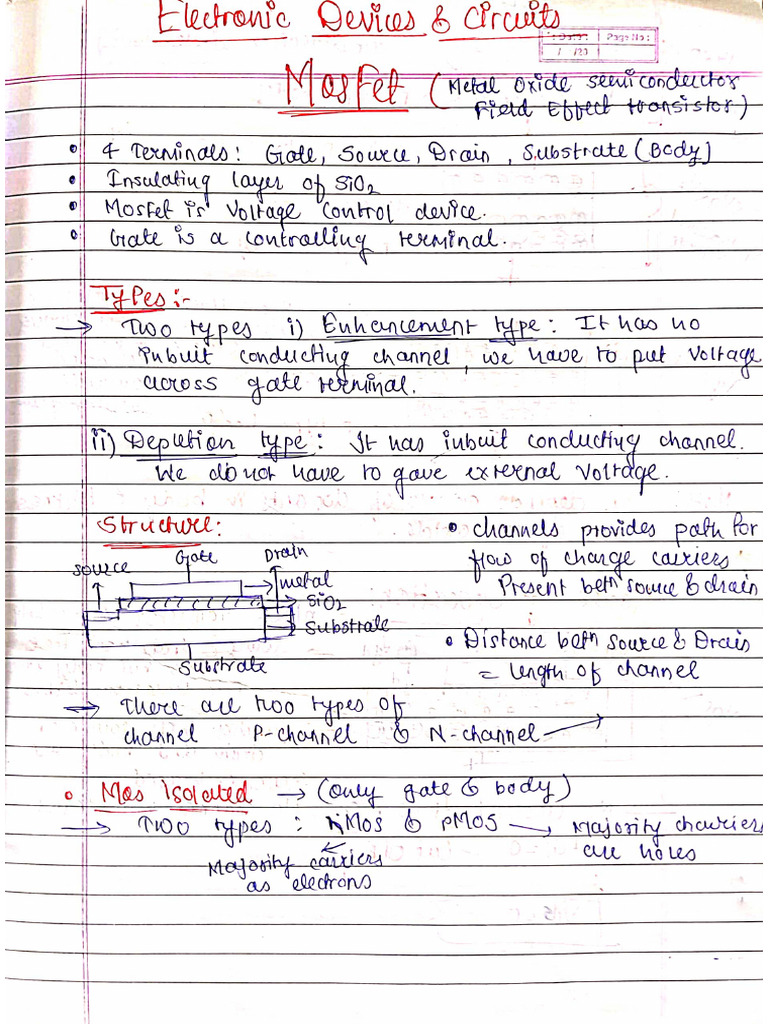 Electronic Devices & Circuits
Page No:
Mosfet (Metal Oxide semiconductor
Field Effect transistor)
• 4 Terminals: Gate, Source, Drain, Substrate (Body)
• Insulating layer of SiO2
• Mosfet is voltage control device.
• Gate is a controlling terminal.
Types:-
→ Two types i) Enhancement type: It has no
inbuit conducting channel, we have to put voltage
across gate terminal.
ii) Depletion type: It has inbuit conducting channel.
We do not have to gave external voltage.
Structure:
Source
Gate
Drain
metal
SiO2
Substrate
Substrate
• channels provides path for
flow of charge carriers.
Present betn source & drain
• Distance betn source & Drain
= length of channel
→ There are two types of
channel P-channel & N-channel →
• Mos Isolated → (Only gate & body)
→ Two types: NMos & PMOS → Majority charriers
are holes
Majority carriers
as electrons